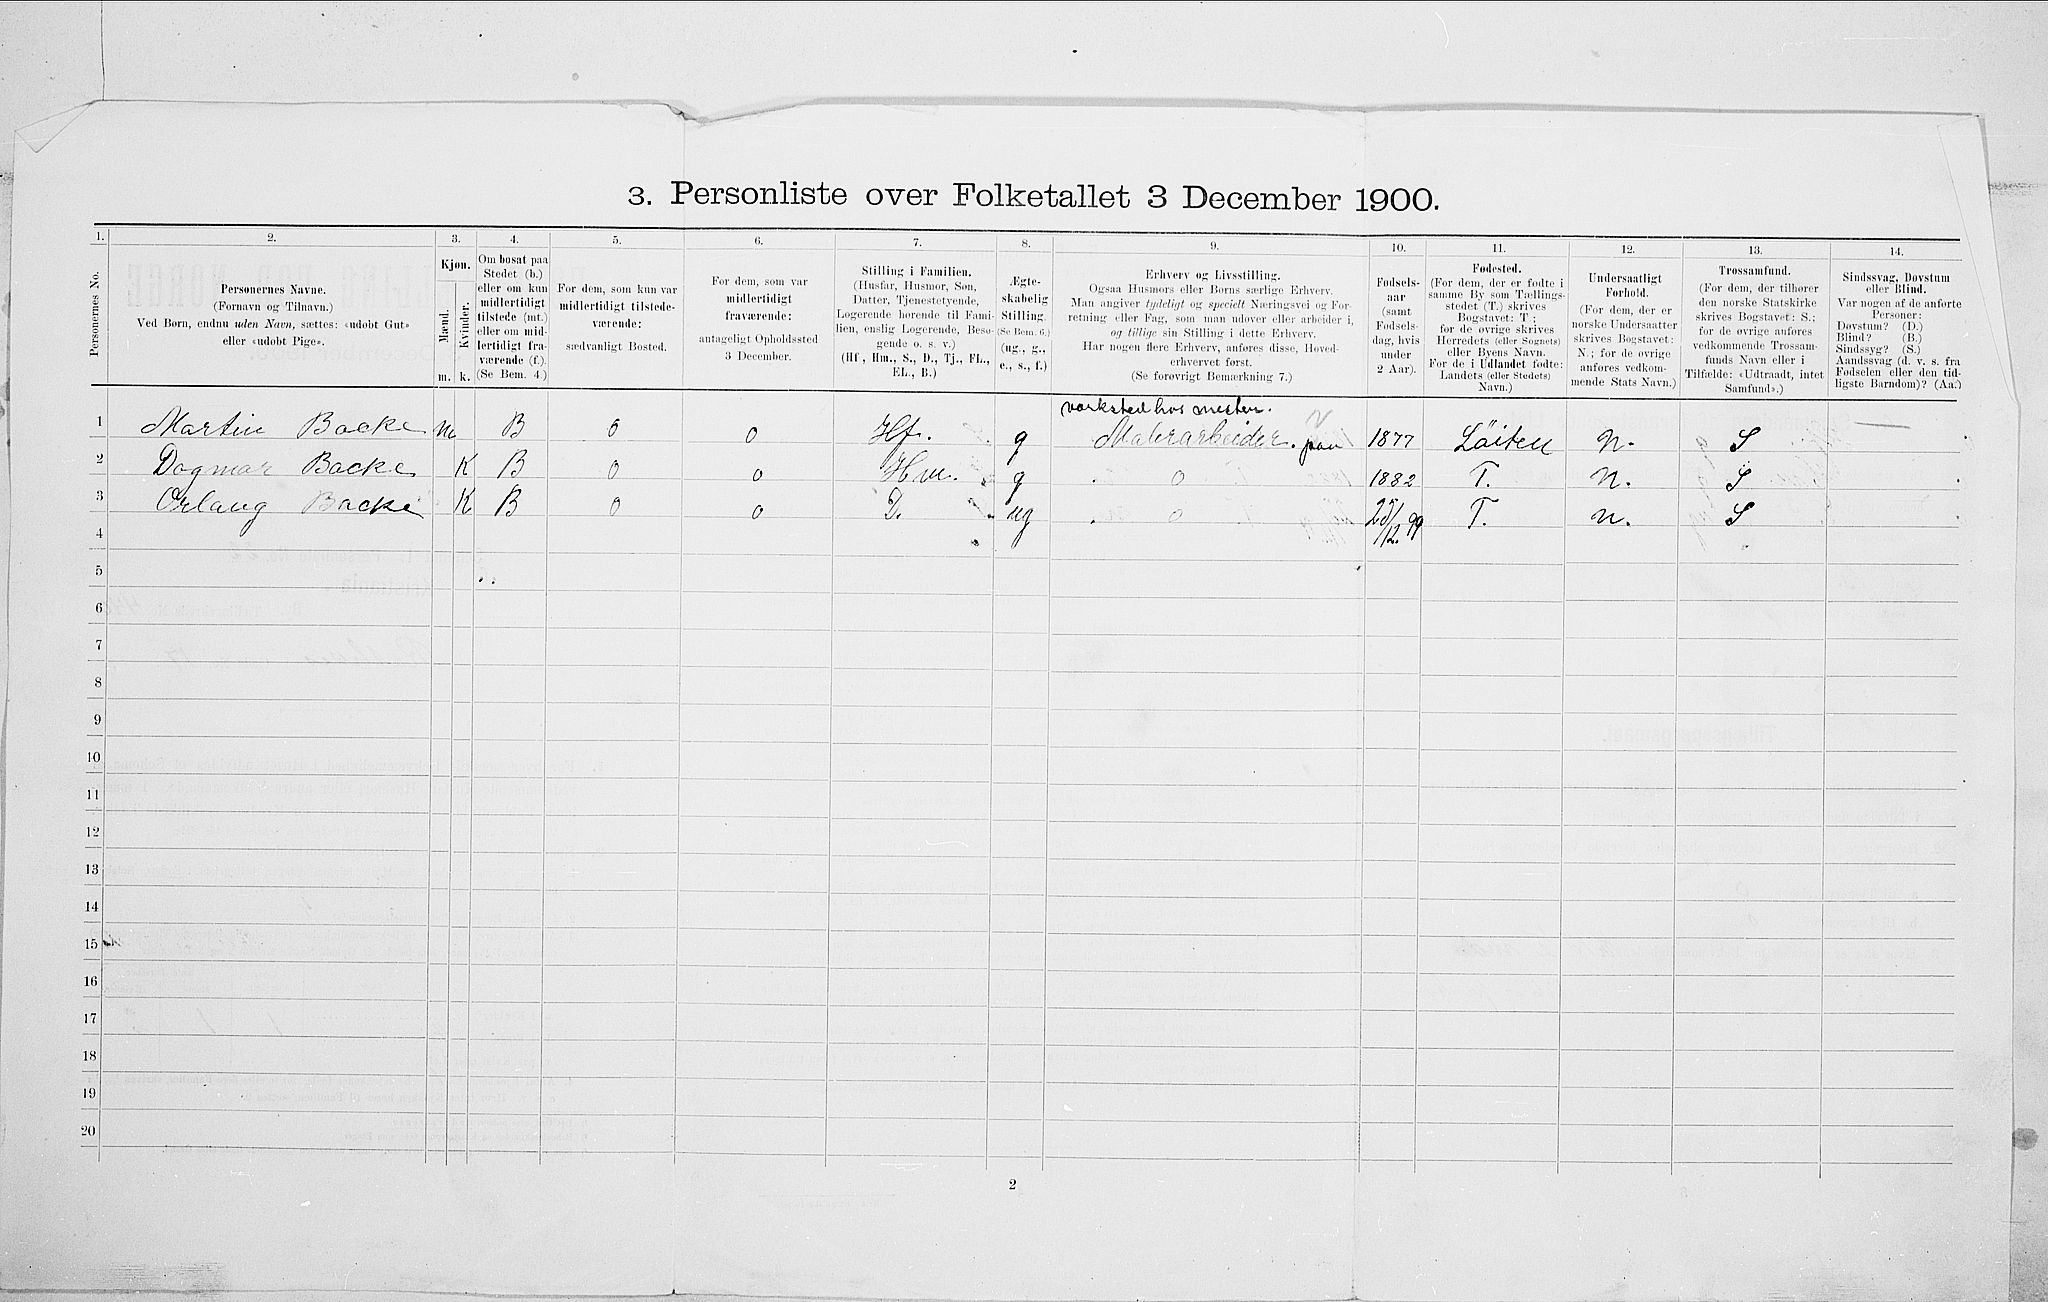 3. Personliste over Folketallet 3 December 1900.
1. 2. 3. 4. 5. 6. 7. 8. 9. 10. 11. 12. 13. 14.
Personernes No.
Personernes Navne.
(Fornavn og Tilnavn.)
Ved Børn, endnu uden Navn, sættes: «udøbt Gut»
eller «udøbt Pige».
Kjøn.
Mænd.
Kvinder.
m. k.
Om bosat paa
Stedet (b.)
eller om kun
midlertidigt
tilstede (mt.)
eller om mid-
lertidigt fra-
værende (f.).
(Se Bem. 4.)
For dem, som kun var
midlertidigt tilstede-
værende:
sædvanligt Bosted.
For dem, som var
midlertidigt
fraværende:
antageligt Opholdssted
3 December.
Stilling i Familien.
(Husfar, Husmor, Søn,
Datter, Tjenestetyende,
Logerende hørende til Fami-
lien, enslig Logerende, Besø-
gende o. s. v.)
(Hf., Hm., S., D., Tj., FL.,
EL., B.)
Ægte-
skabelig
Stilling.
(Se Bem. 6.)
(ug., g.,
e., s., f.)
Erhverv og Livsstilling.
Ogsaa Husmors eller Børns særlige Erhverv.
Man angiver tydeligt og specielt Næringsvei og For-
retning eller Fag, som man udøver eller arbeider i,
og tillige sin Stilling i dette Erhverv.
Har nogen flere Erhverv, anføres disse, Hoved-
erhvervet først.
(Se forøvrigt Bemærkning 7.)
Fødsels-
aar
(samt
Fødsels-
dag, hvis
under
2 Aar).
Fødested.
(For dem, der er fødte i
samme By som Tællings-
stedet (T.) skrives
Bogstavet: T.;
for de øvrige skrives
Herredets (eller Sognets)
eller Byens Navn.
For de i Udlandet fødte:
Landets (eller Stedets)
Navn.)
Undersaatligt
Forhold.
(For dem, der er
norske Undersaatter
skrives Bogstavet:
N.; for de øvrige
anføres vedkom-
mende Stats Navn.)
Trossamfund.
(For dem, der tilhører
den norske Statskirke
skrives Bogstavet: S.;
for de øvrige anføres
vedkommende Trossam-
funds Navn eller i
Tilfælde: «Udtraadt, intet
Samfund».)
Sindssvag, Døvstum
eller Blind.
Var nogen af de anførte
Personer:
Døvstum? (D.)
Blind? (B.)
Sindssyg? (S.)
Aandssvag (d. v. s. fra
Fødselen eller den tid-
ligste Barndom)? (Aa.)
værksted hos mester.
1 Martin Backe m B 0 0 Hf. g Malerarbeider. paa 1877 Löiten N. S —
2 Dagmar Backe K B 0 0 Hm. g 0 1882 T. N. S
3 Orlaug Backe K B 0 0 D. ug 0 25/12.99 T. N. S
4
5
6
7
8
9
10
11
12
13
14
15
16
17
18
19
20
2